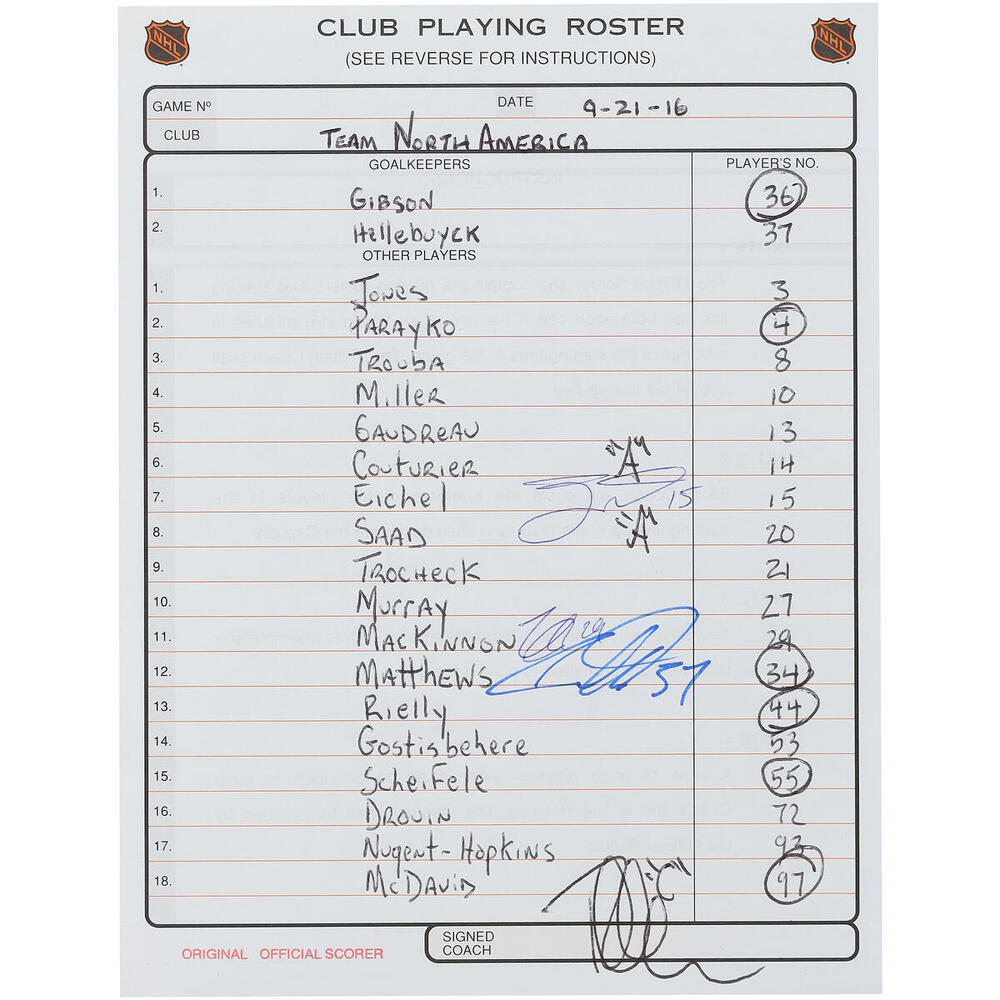 NHL CLUB PLAYING ROSTER NHL
(SEE REVERSE FOR INSTRUCTIONS)
GAME Nº DATE 9-21-16
CLUB TEAM NORTH AMERICA
GOALKEEPERS PLAYER'S NO.
1. GIBSON 36
2. Hellebuyck 37
OTHER PLAYERS
1. JONES 3
2. PARAYKO 4
3. TROUBA 8
4. Miller 10
5. GAUDREAU 13
6. COUTURIER "A" 14
7. Eichel 15 15
8. SAAD "A" 20
9. TROCHECK 21
10. MURRAY 27
11. MACKINNON 29 29
12. MATTHEWS 37 34
13. Rielly 44
14. Gostisbehere 53
15. Scheifele 55
16. DROUIN 72
17. Nugent-Hopkins 93
18. McDAVID "C" 97
SIGNED
COACH
ORIGINAL OFFICIAL SCORER